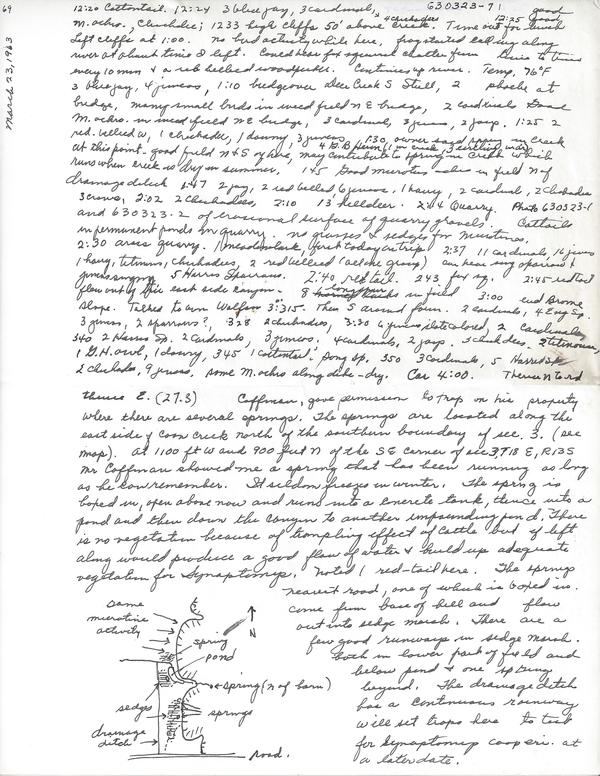 69
March 23, 1963
630323-71
12:20 Cottontail, 12:24 3 blue jay, 3 cardinals, 4 chickadees 12:25 good
M. ochro., Chuchilic; 1233 high cliffs 50' above creek. Time out for lunch
Left cliffs at 1:00. no bird activity while here, frog started calling along
river at about time I left. Could hear fox squirrel chatter from time to time
every 10 min & a red bellied woodpecker. Continued up river. Temp, 76°F
3 blue jay, 4 juncos, 1:10 bridge over Deer Creek S Stull, 2 phoebe at
bridge, many small birds in weed field N E bridge, 2 cardinals Good
M. ochro. in weed field N E bridge, 3 cardinals, 3 juncos, 2 jays. 1:25 2
red. bellied w, 1 chickadee, 1 downy, 3 juncos, 1:30, owner says spring in creek
at this point - good field N & S of here, 4 G. B. Heron (1 in creek, 3 circling, nearby) may contribute to spring in creek which
runs when creek is dry in summer, 145 Good microtus in field N of
drainage ditch 1:47 2 jay, 2 red bellied 6 juncos, 1 hairy, 2 cardinals, 2 chickadees
3 crows, 2:02 2 chickadees, 2:10 13 killdeer. 2:14 Quarry. Photo 630323-1
and 630323-2 of erosional surface of quarry gravels. Cattails
in permanent ponds in quarry. no grasses & sedges for microtines,
2:30 cross quarry. 1 meadowlark, first today on trip 2:37 11 cardinals, 16 juncos
1 hairy, titmice, chickadees, 2 red bellied (all one group) can hear song sparrow &
juncos singing 5 Harris Sparrows. 2:40 red tail. 243 fox sq. 2:45 red tail
flew out of east side canyon. 8 longspurs in field 3:00 end Brome
slope. Talked to Wolfson 3:315. Then S around farm. 2 cardinals, 4 Eng Sp.
3 juncos, 2 sparrows?, 328 2 chickadees, 3:30 6 juncos slate colored, 2 Cardinals,
340 2 Harris Sp. 2 Cardinals, 3 juncos. 4 cardinals, 2 jays. 3 chickadees. 2 titmouse,
1 G. H. owl, 1 downy, 345 1 cottontail. Song sp. 350 3 Cardinals, 5 Harris Sp
2 chickadees, 9 juncos, some M. ochro along dike - dry. Car 4:00. Thence N to rd
thence E. (27.3) Coffman, gave permission to trap on his property
where there are several springs. The springs are located along the
east side of Coon Creek north of the southern boundary of sec. 3. (see
map). At 1100 ft W and 900 feet N of the SE corner of sec 3, T18 E, R13S
Mr Coffman showed me a spring that has been running as long
as he can remember. It seldom freezes in winter. The spring is
boxed in, open above now and runs into a concrete tank, thence into a
pond and then down the canyon to another impounding pond. There
is no vegetation because of trampling effect of cattle but if left
along would produce a good flow of water & build up adequate
vegetation for Synaptomys. Noted 1 red-tail here. The springs
nearest road, one of which is boxed in.
come from base of hill and flow
out into sedge marsh. There are a
few good runways in sedge marsh.
Both in lower part of field and
below pond & one spring
beyond. The drainage ditch
has a continuous runway
will set traps here to test
for Synaptomys cooperi. at
a later date.
Some
microtine
activity
N
spring
pond
spring (N of barn)
sedges
springs
drainage
ditch
Road.